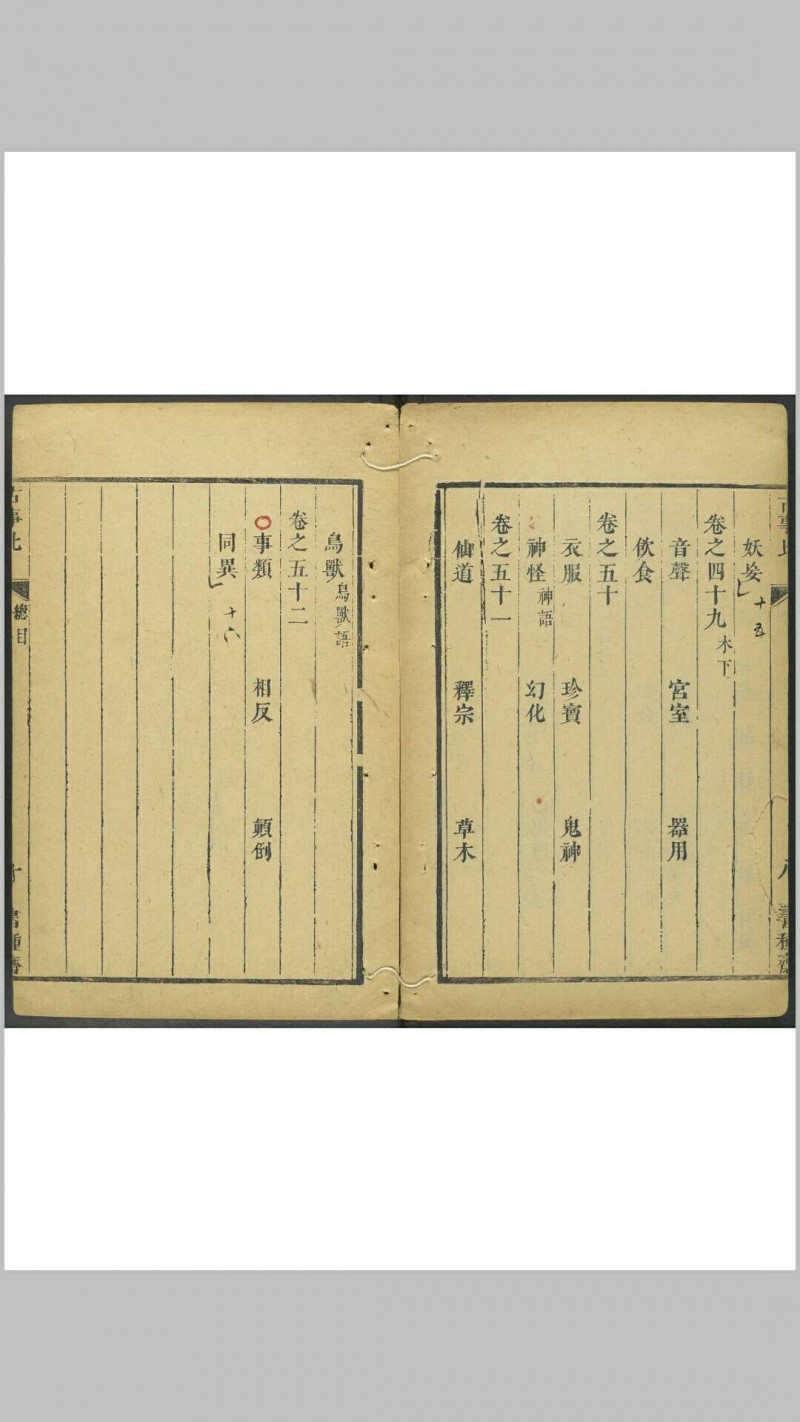 妖妾 十五
卷之四十九 木下
音聲 宮室 器用
飲食
卷之五十
衣服 珍寶 鬼神
神怪 神語 幻化
卷之五十一
仙道 釋宗 草木
鳥獸 鳥獸語
卷之五十二
事類 相反 顛倒
同異 十六
古事比 總目 十 書種齋